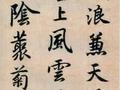 浪兼天
上風雲
陰藂菊